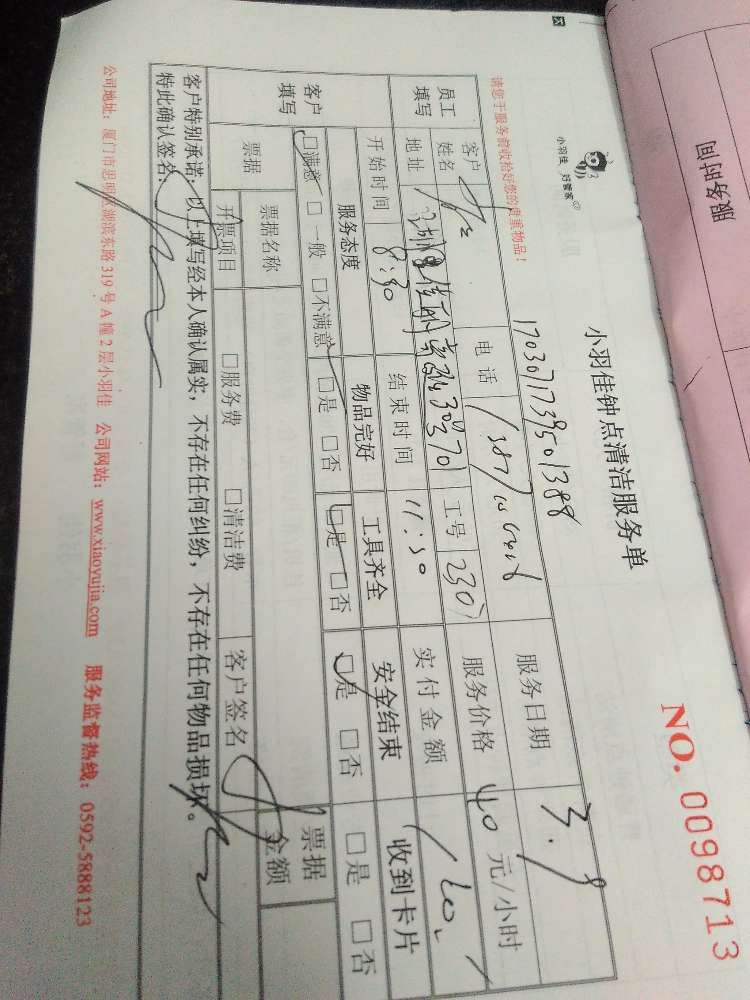 服务时间
小羽佳 好管家
小羽佳钟点清洁服务单
NO. 0098713
请您于服务前收拾好您的贵重物品！
1703071739501388
员工填写
客户姓名
电话
服务日期 3.9
地址
工号 2307
服务价格 40 元/小时
开始时间 8:30
结束时间 11:30
实付金额 120
客户填写
服务态度
物品完好
工具齐全
安全结束
收到卡片
□满意 □一般 □不满意
□是 □否
□是 □否
□是 □否
□是 □否
票据
票据名称
票据金额
开票项目
□服务费 □清洁费
客户签名
客户特别承诺：以上填写经本人确认属实，不存在任何纠纷，不存在任何物品损坏。
特此确认签名：
公司地址：厦门市思明区湖滨东路 319 号 A 幢 2 层小羽佳 公司网站：www.xiaoyujia.com 服务监督热线：0592-5888123